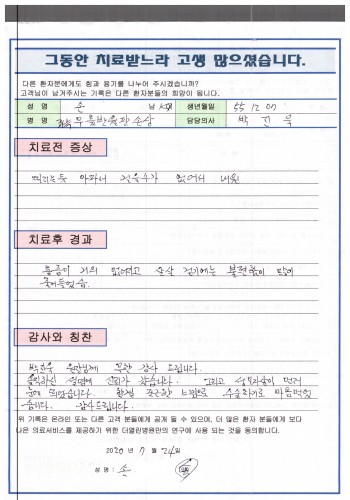 그동안 치료받느라 고생 많으셨습니다.
다른 환자분에게도 힘과 용기를 나누어 주시겠습니까?
고객님이 남겨주시는 기록은 다른 환자분들의 희망이 됩니다.
성 명 손 남 생년월일 55 12 07
병 명 무릎반월판손상 담당의사 박 진 욱
치료전 증상
찍히는듯 아파서 걸을수가 없어서 내원
치료후 경과
통증이 거의 없어졌고 살살 걷기에는 불편함이 많이
줄어들었음
감사와 칭찬
박진욱 원장님께 무한 감사 드립니다.
설명에 신뢰가 갔습니다. 그리고
수술하기로 마음먹었
습니다. 감사드립니다.
위 기록은 온라인 또는 다른 고객 분들에게 공개 될 수 있으며, 더 많은 환자 분들에게 보다
나은 의료서비스를 제공하기 위한 더열린병원만의 연구에 사용 되는 것을 동의합니다.
2020 년 7 월 24 일
성 명 : 손